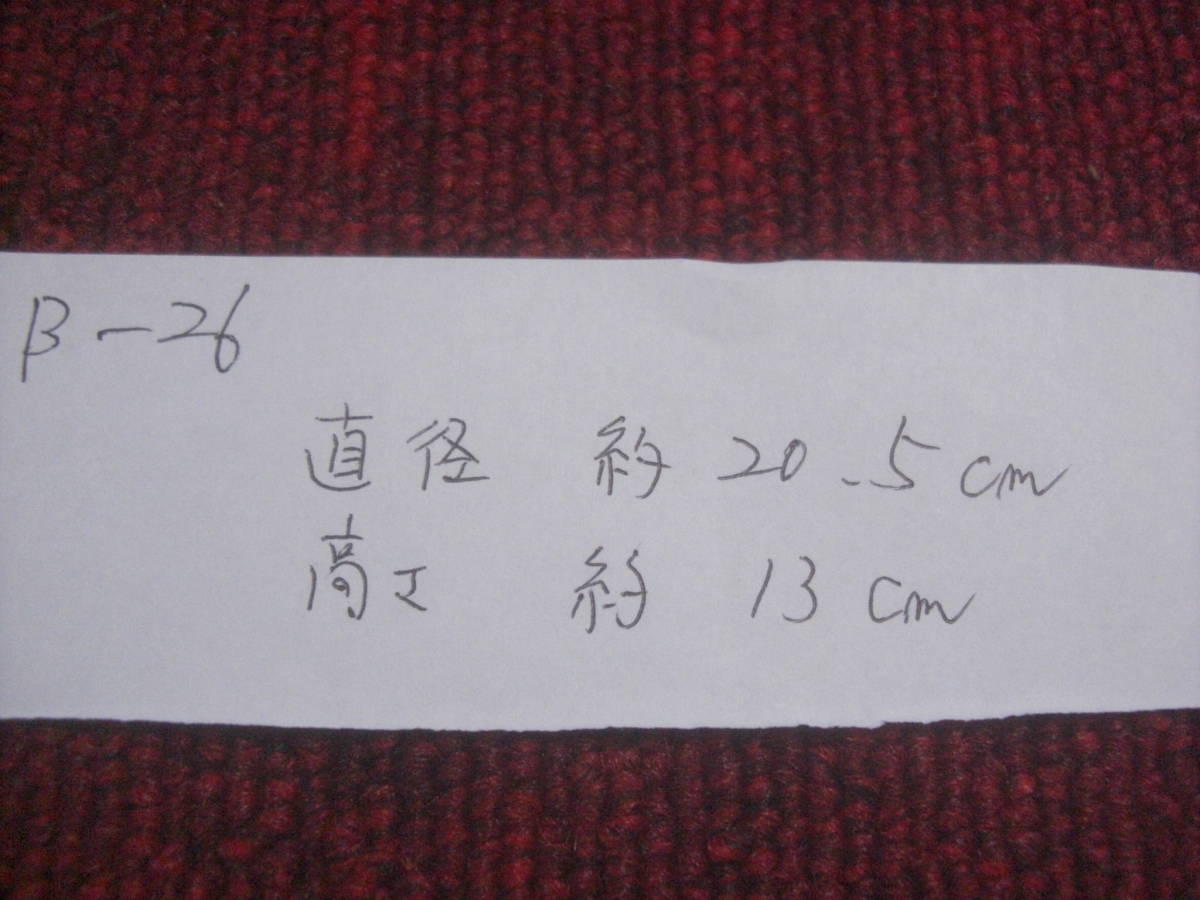 B-26
直径 約 20.5cm
高さ 約 13cm